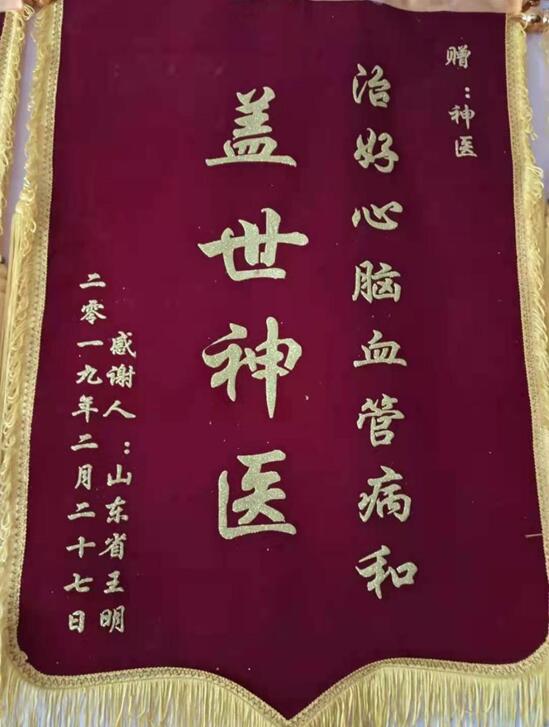 赠：神医
治好心脑血管病和
盖世神医
感谢人：山东省王明
二零一九年二月二十七日